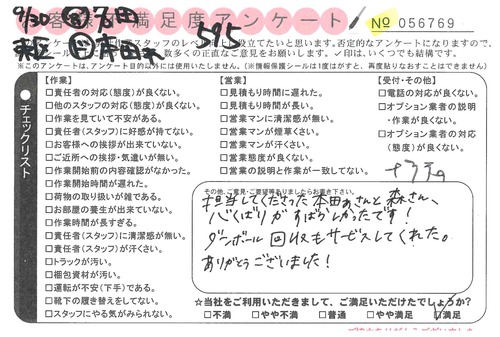 お客様満足度アンケート
No 056769
595
チェックリスト
※このアンケートは、アンケート目的以外には使用いたしません。(※情報保護シールは1度はがすと、再度貼りなおすことはできません)
【作業】
□責任者の対応(態度)が良くない。
□他のスタッフの対応(態度)が良くない。
□作業を見ていて不安がある。
□責任者(スタッフ)に好感が持てない。
□お客様への挨拶が出来ていない。
□ご近所への挨拶・気遣いが無い。
□作業開始前の内容確認がなかった。
□作業開始時間が遅れた。
□荷物の取り扱いが雑である。
□お部屋の養生が出来ていない。
□作業時間が長すぎる。
□責任者(スタッフ)に清潔感が無い。
□責任者(スタッフ)が汗くさい。
□トラックが汚い。
□梱包資材が汚い。
□運転が不安(下手)である。
□靴下の履き替えをしてない。
□スタッフにやる気がみられない。
【営業】
□見積もり時間に遅れた。
□見積もり時間が長い。
□営業マンに清潔感が無い。
□営業マンが煙草くさい。
□営業マンが汗くさい。
□営業態度が良くない。
□営業の説明と作業が一致してない。
【受付・その他】
□電話の対応が良くない。
□オプション業者の説明
・作業が良くない。
□オプション業者の対応
(態度)が良くない。
その他、ご意見・ご要望等ありましたらお書き下さい。
担当してくださった本田さんと森さん、
心くばりがすばらしかったです!
ダンボール回収もサービスしてくれた。
ありがとうございました!
☆当社をご利用いただきまして、ご満足いただけたでしょうか?
□不満 □やや不満 □普通 □やや満足 □満足